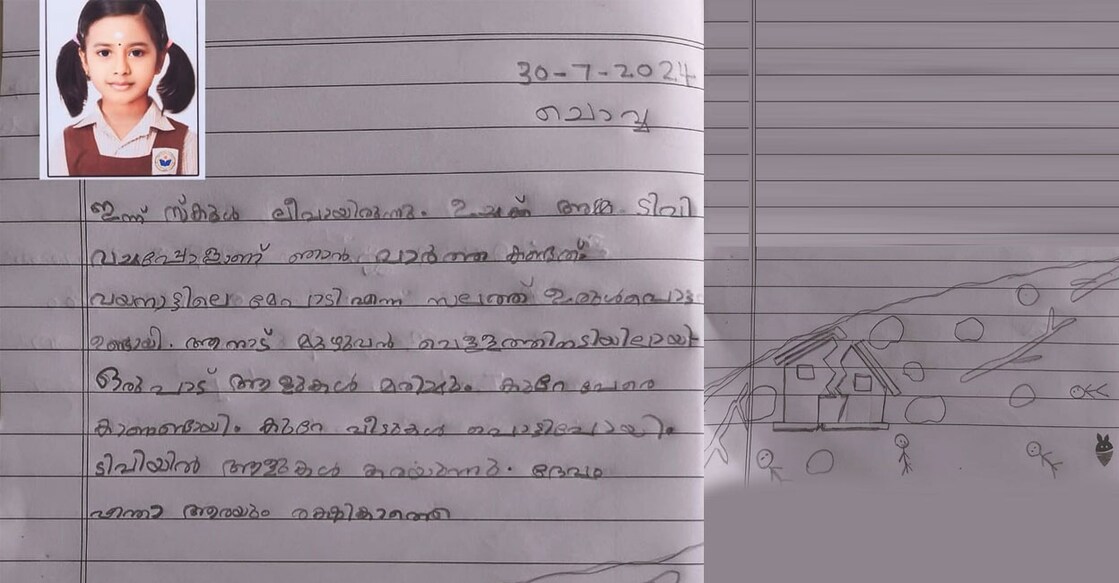 30-7-2024
ചൊവ്വ
ഇന്ന് സ്കൂൾ ലീവായിരുന്നു. ഉച്ചക്ക് അമ്മ ടിവി
വച്ചപ്പോളാണ് ഞാൻ വാർത്ത കണ്ടത്
വയനാട്ടിലെ മേപ്പാടി എന്ന സലത്ത് ഉരുൾപൊട്ട
ഉണ്ടായി. ആനാട് മുഴുവൻ വെള്ളത്തിനടിയിലായി
ഒരുപാട് ആളുകൾ മരിച്ചു. കുറേ പേരെ
കാണാണ്ടായി. കുറേ വീടുകൾ പൊട്ടിപ്പോയി.
ടിവിയിൽ ആളുകൾ കരയുന്നു. ദൈവം
എന്താ ആരയും രക്ഷിക്കാത്തെ